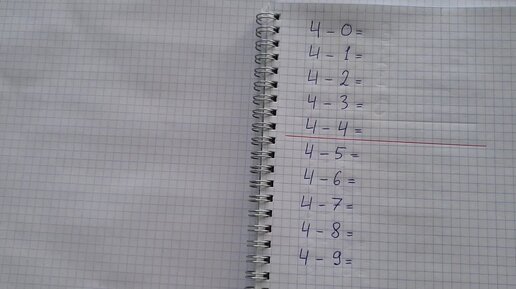 4 - 0 =
4 - 1 =
4 - 2 =
4 - 3 =
4 - 4 =
4 - 5 =
4 - 6 =
4 - 7 =
4 - 8 =
4 - 9 =